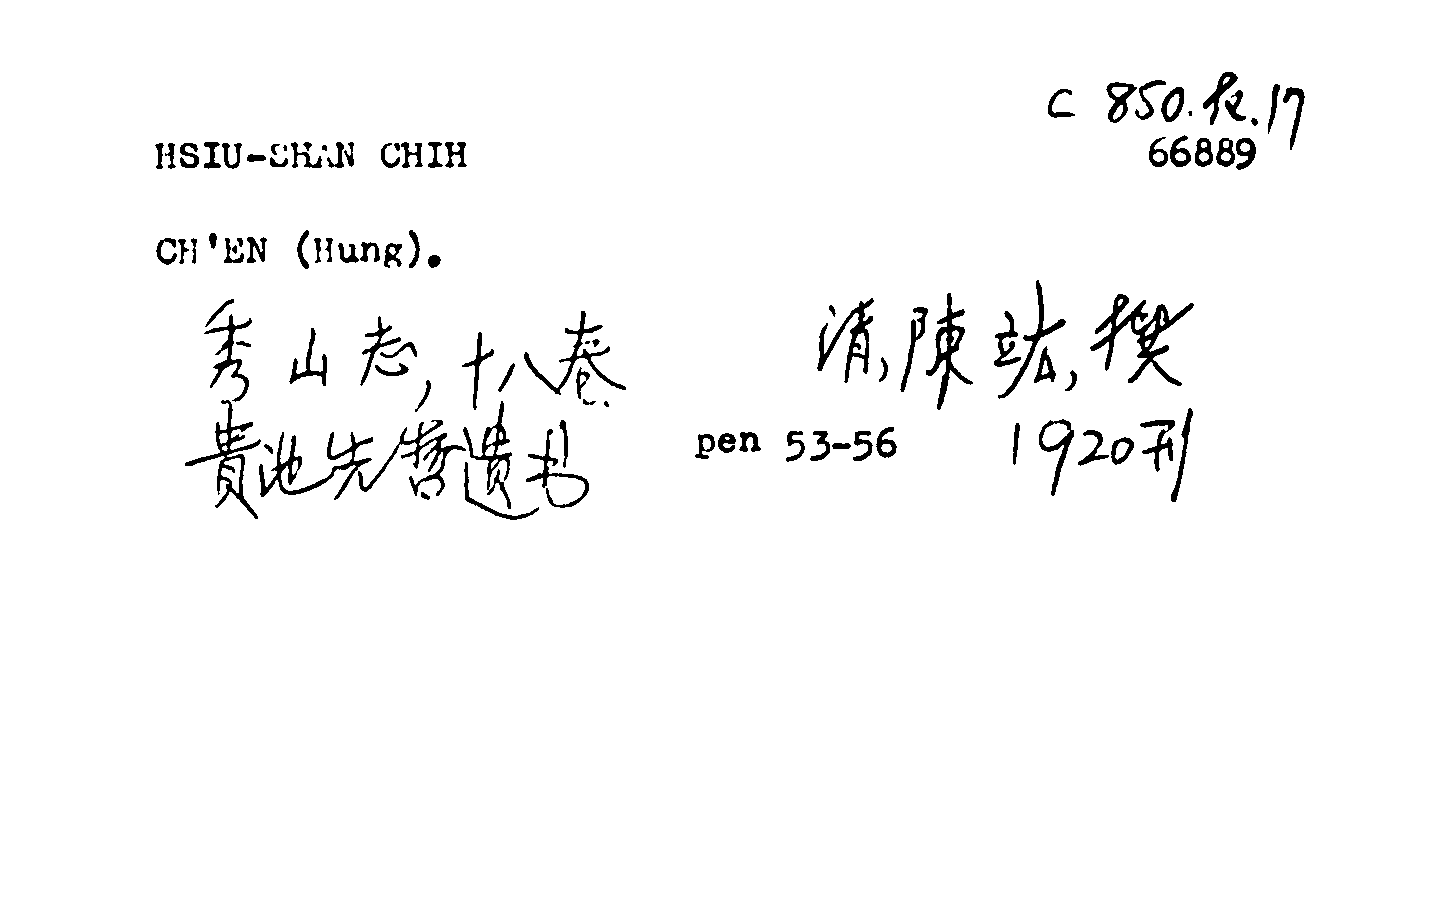 C 850.fe.17
66889
HSIU-SHAN CHIH
CH'EN (Hung).
秀山志, 十八卷 清, 陳竑, 撰
貴池先哲遺书 pen 53-56 1920刊